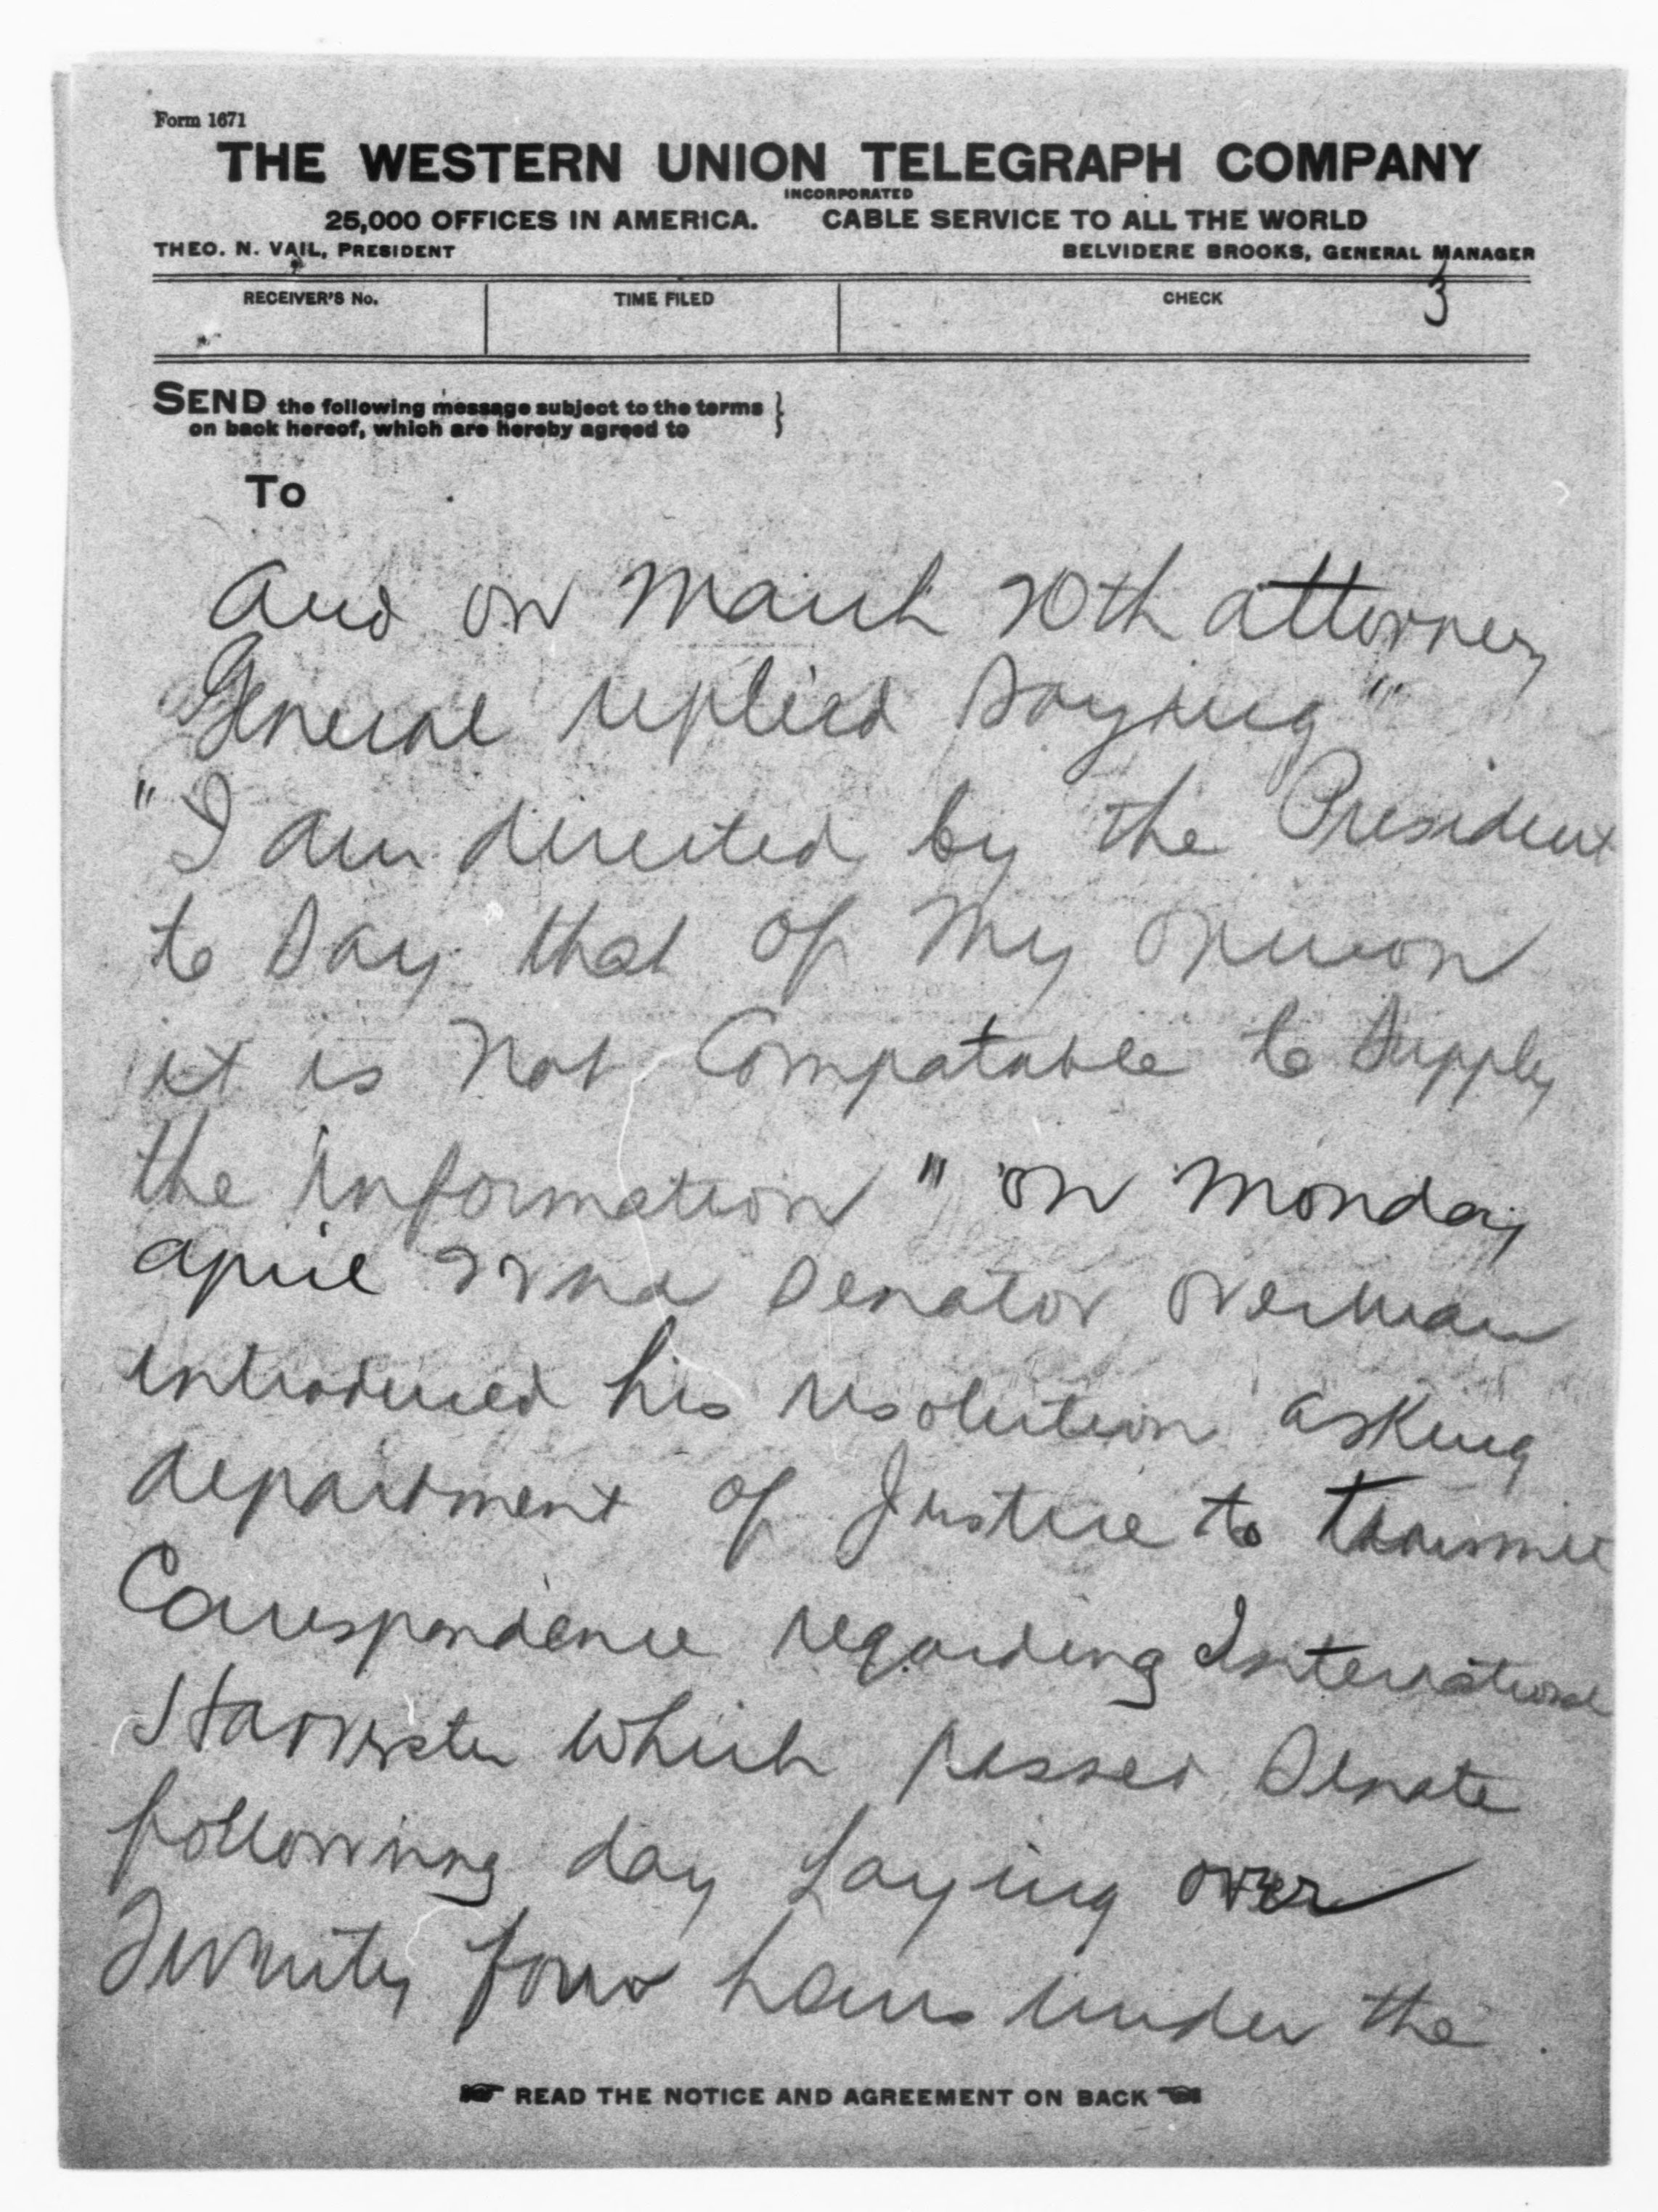 Form 1671
THE WESTERN UNION TELEGRAPH COMPANY
INCORPORATED
25,000 OFFICES IN AMERICA. CABLE SERVICE TO ALL THE WORLD
THEO. N. VAIL, PRESIDENT BELVIDERE BROOKS, GENERAL MANAGER
RECEIVER'S No. TIME FILED CHECK 3
SEND the following message subject to the terms
on back hereof, which are hereby agreed to
To
And on March 20th attorney
General replied saying "
"I am directed by the President
to say that of my opinion
it is not compatable to supply
the information " on Monday
april 22nd Senator Overman
introduced his resolution asking
department of Justice to transmit
Correspondence regarding International
Harvester which passed Senate
following day laying over
Twenty four hours under the
READ THE NOTICE AND AGREEMENT ON BACK